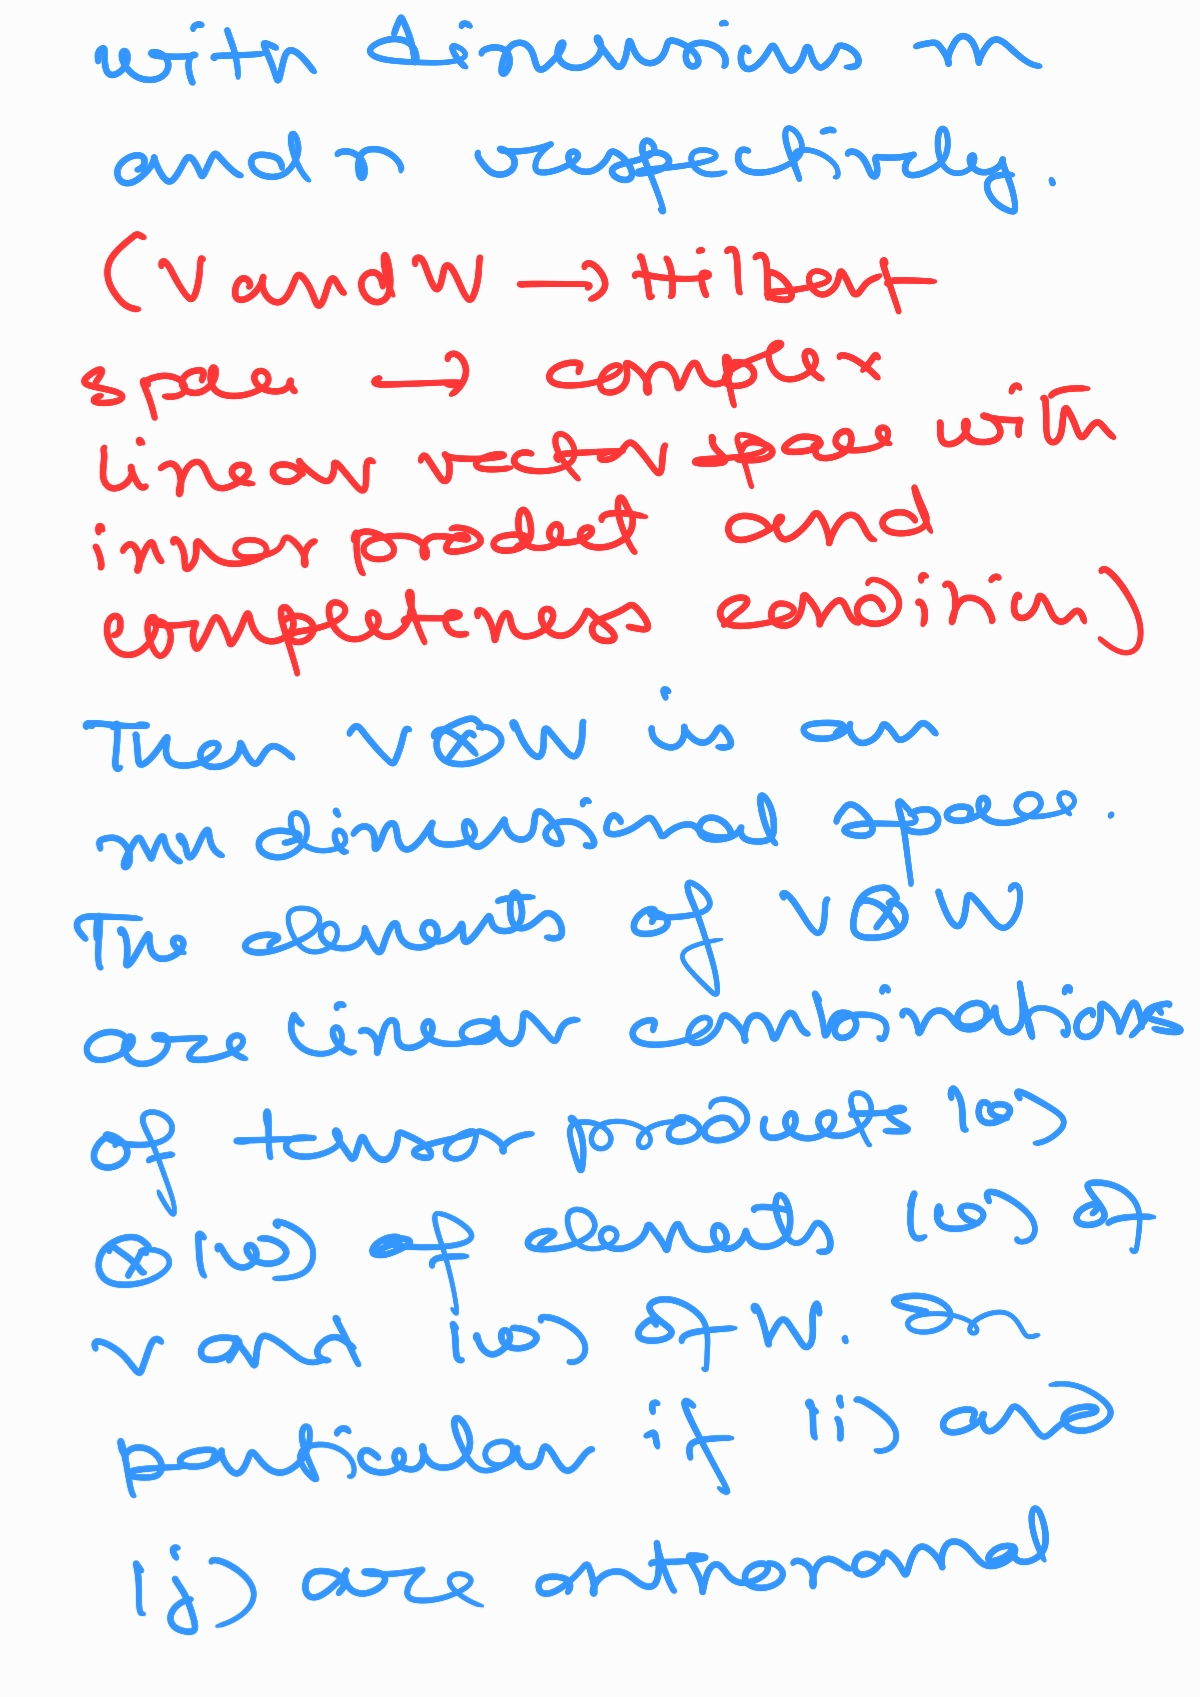 with dimensions m
and n respectively.
(V and W → Hilbert
space → complex
linear vector space with
inner product and
completeness condition)
Then V ⊗ W is an
mn dimensional space.
The elements of V ⊗ W
are linear combinations
of tensor products |v⟩
⊗ |w⟩ of elements |v⟩ of
V and |w⟩ of W. In
particular if |i⟩ and
|j⟩ are orthonormal